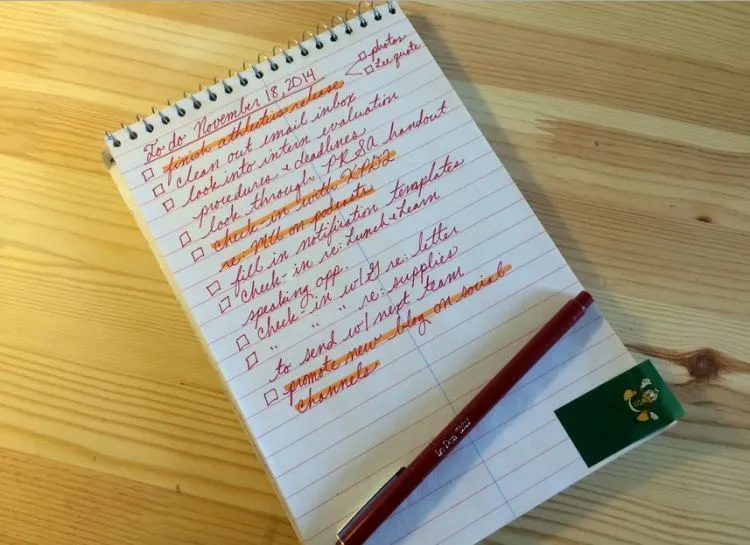 To do November 18, 2014
photos
Lee quote
finish athletics release
clean out email inbox
look into intern evaluation
procedures + deadlines
look through PRSA handout
check-in with XPD2
re: on podcasts
fill in notification templates
check-in re: Lunch + Learn
speaking opp.
check-in w/G re: letter
" " " re: supplies
to send w/ next team
promote new blog on social
channels
Le Pen